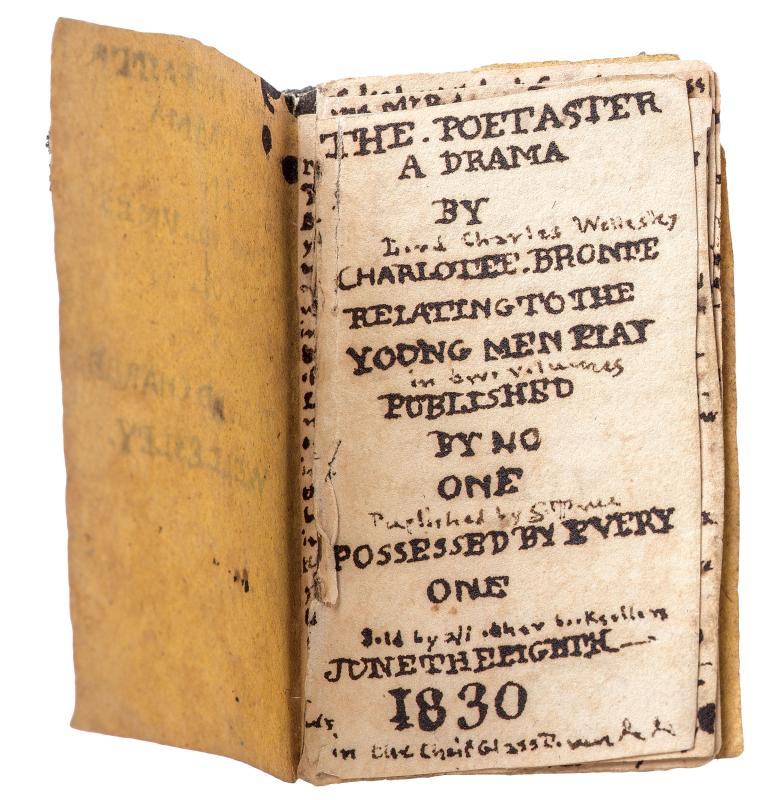 THE. POETASTER
A DRAMA
BY
Lord Charles Wellesley
CHARLOTTE. BRONTE
RELATING TO THE
YOUNG MEN PLAY
in two volumes
PUBLISHED
BY NO
ONE
Puplished by
POSSESSED BY EVERY
ONE
Sold by all other booksellers
JUNE THE EIGHTH
1830
in the Cheif Glass Town &c &c